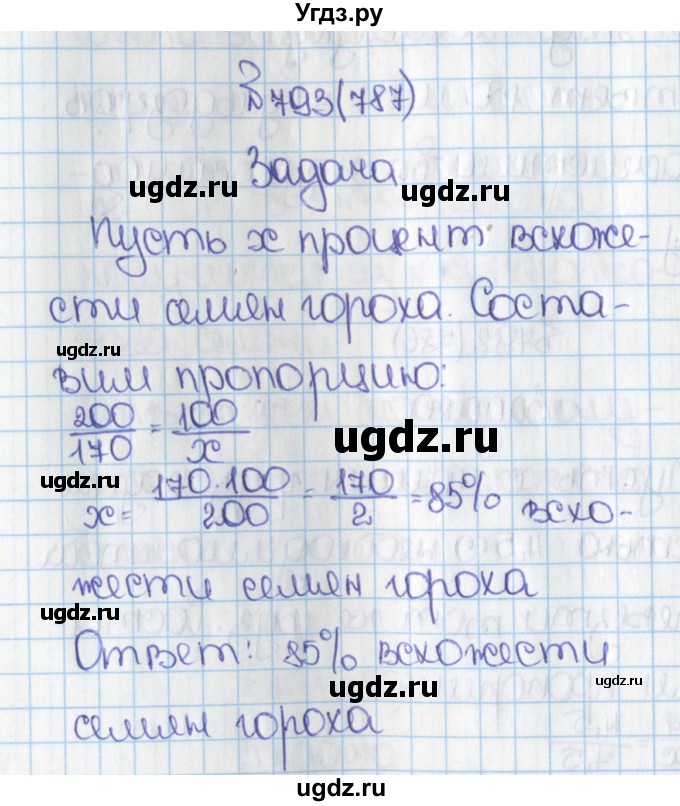 Угдз.ру
№793(787)
Задача
ugdz.ru ugdz.ru
Пусть x процент всхоже-
сти семян гороха. Соста-
ugdz.ru
вим пропорцию:
200/170 = 100/x
ugdz.ru
ugdz.ru
x = 170·100/200 = 170/2 = 85% всхо-
жести семян гороха
ugdz.ru
Ответ: 85% всхожести
ugdz.ru ugdz.ru
семян гороха
ugdz.ru